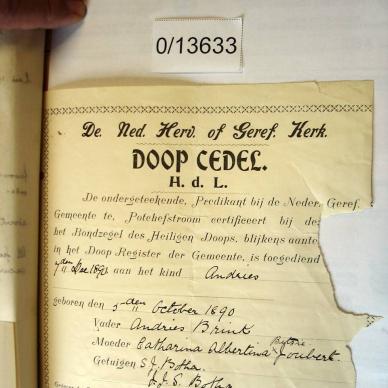 0/13633
De. Ned. Herv. of Geref. Kerk.
DOOP CEDEL.
H. d. L.
De ondergeteekende, Predikant bij de Neder. Geref.
Gemeente te, Potchefstroom certificeert bij de
het Bondzegel des Heiligen Doops, blijkens aante
in het Doop Register der Gemeente, is toegediend
7den Dec 1890 aan het kind Andries
geboren den 5den October 1890
Vader Andries Brink
Moeder Catharina Albertina Joubert
Getuigen S J. Botha.
J. S. Botha